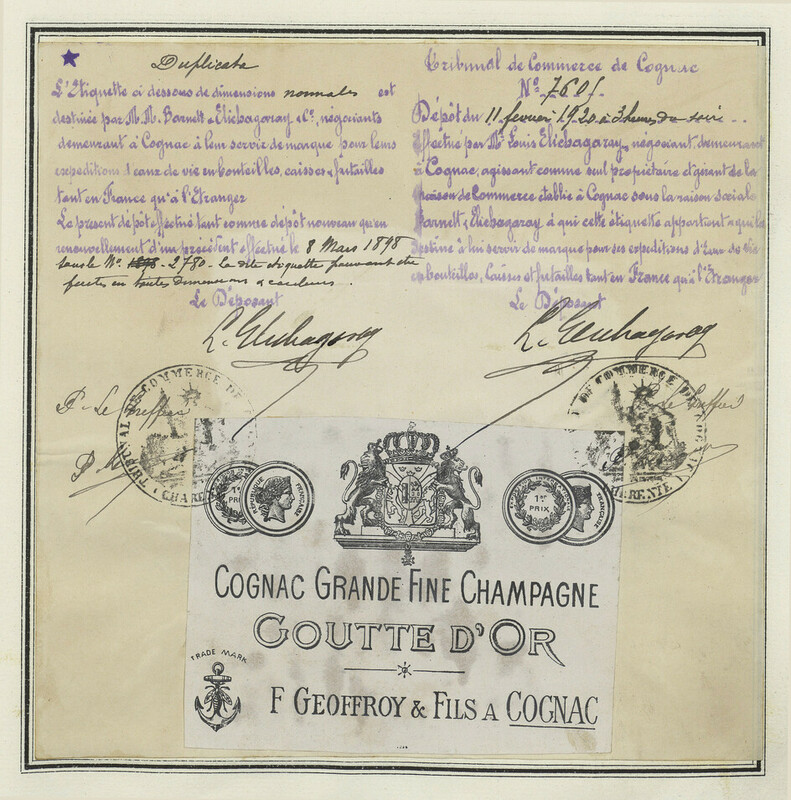 Duplicata
L'Etiquette ci dessous de dimensions normales est
destinée par M.M. Barnett & Elichagaray & Cº, négociants
demeurant à Cognac à leur servir de marque pour leurs
expéditions d'eaux de vie en bouteilles, caisses & futailles
tant en France qu'à l'Etranger
Le présent dépôt effectué tant comme dépôt nouveau qu'en
renouvellement d'un précédent effectué le 8 Mars 1898
sous le Nº 2780 - la dite étiquette pouvant être
faites en toutes dimensions & couleurs.
Le Déposant
L. Elichagaray
P. Le Greffier
TRIBUNAL DE COMMERCE DE
CHARENTE
Tribunal de Commerce de Cognac
Nº 7605
Dépôt du 11 février 1920 à 3 heures du soir
Effectué par Mr Louis Elichagaray, négociant, demeurant
à Cognac, agissant comme seul propriétaire & gérant de la
Maison de Commerce établie à Cognac sous la raison sociale
Barnett & Elichagaray à qui cette étiquette appartient & qui la
destine à lui servir de marque pour ses expéditions d'Eaux de vie
en bouteilles, Caisses et futailles tant en France qu'à l'Etranger
Le Déposant
L. Elichagaray
Le Greffier
DE COMMERCE DE COGNAC
CHARENTE
1er PRIX
REPUBLIQUE FRANÇAISE
1er PRIX
FRANÇAISE
COGNAC GRANDE FINE CHAMPAGNE
GOUTTE D'OR
TRADE MARK
F GEOFFROY & FILS A COGNAC